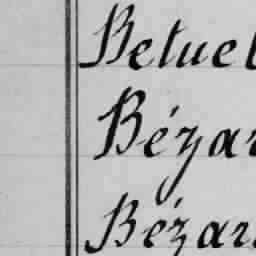 Betuel
Bézar
Bézar